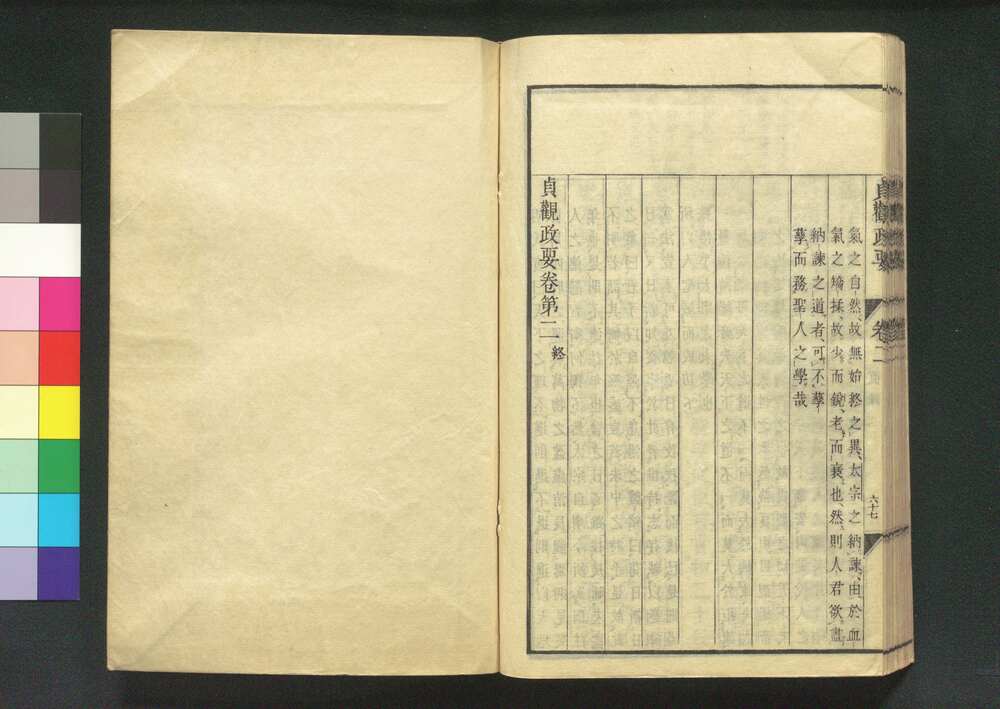 貞觀政要 卷二 六十七
氣之自然、故無始終之異、太宗之納諫、由於血
氣之矯揉、故少而銳、老而衰也、然則人君欲盡
納諫之道者、可不孳
孳而務聖人之學哉
貞觀政要卷第二 終